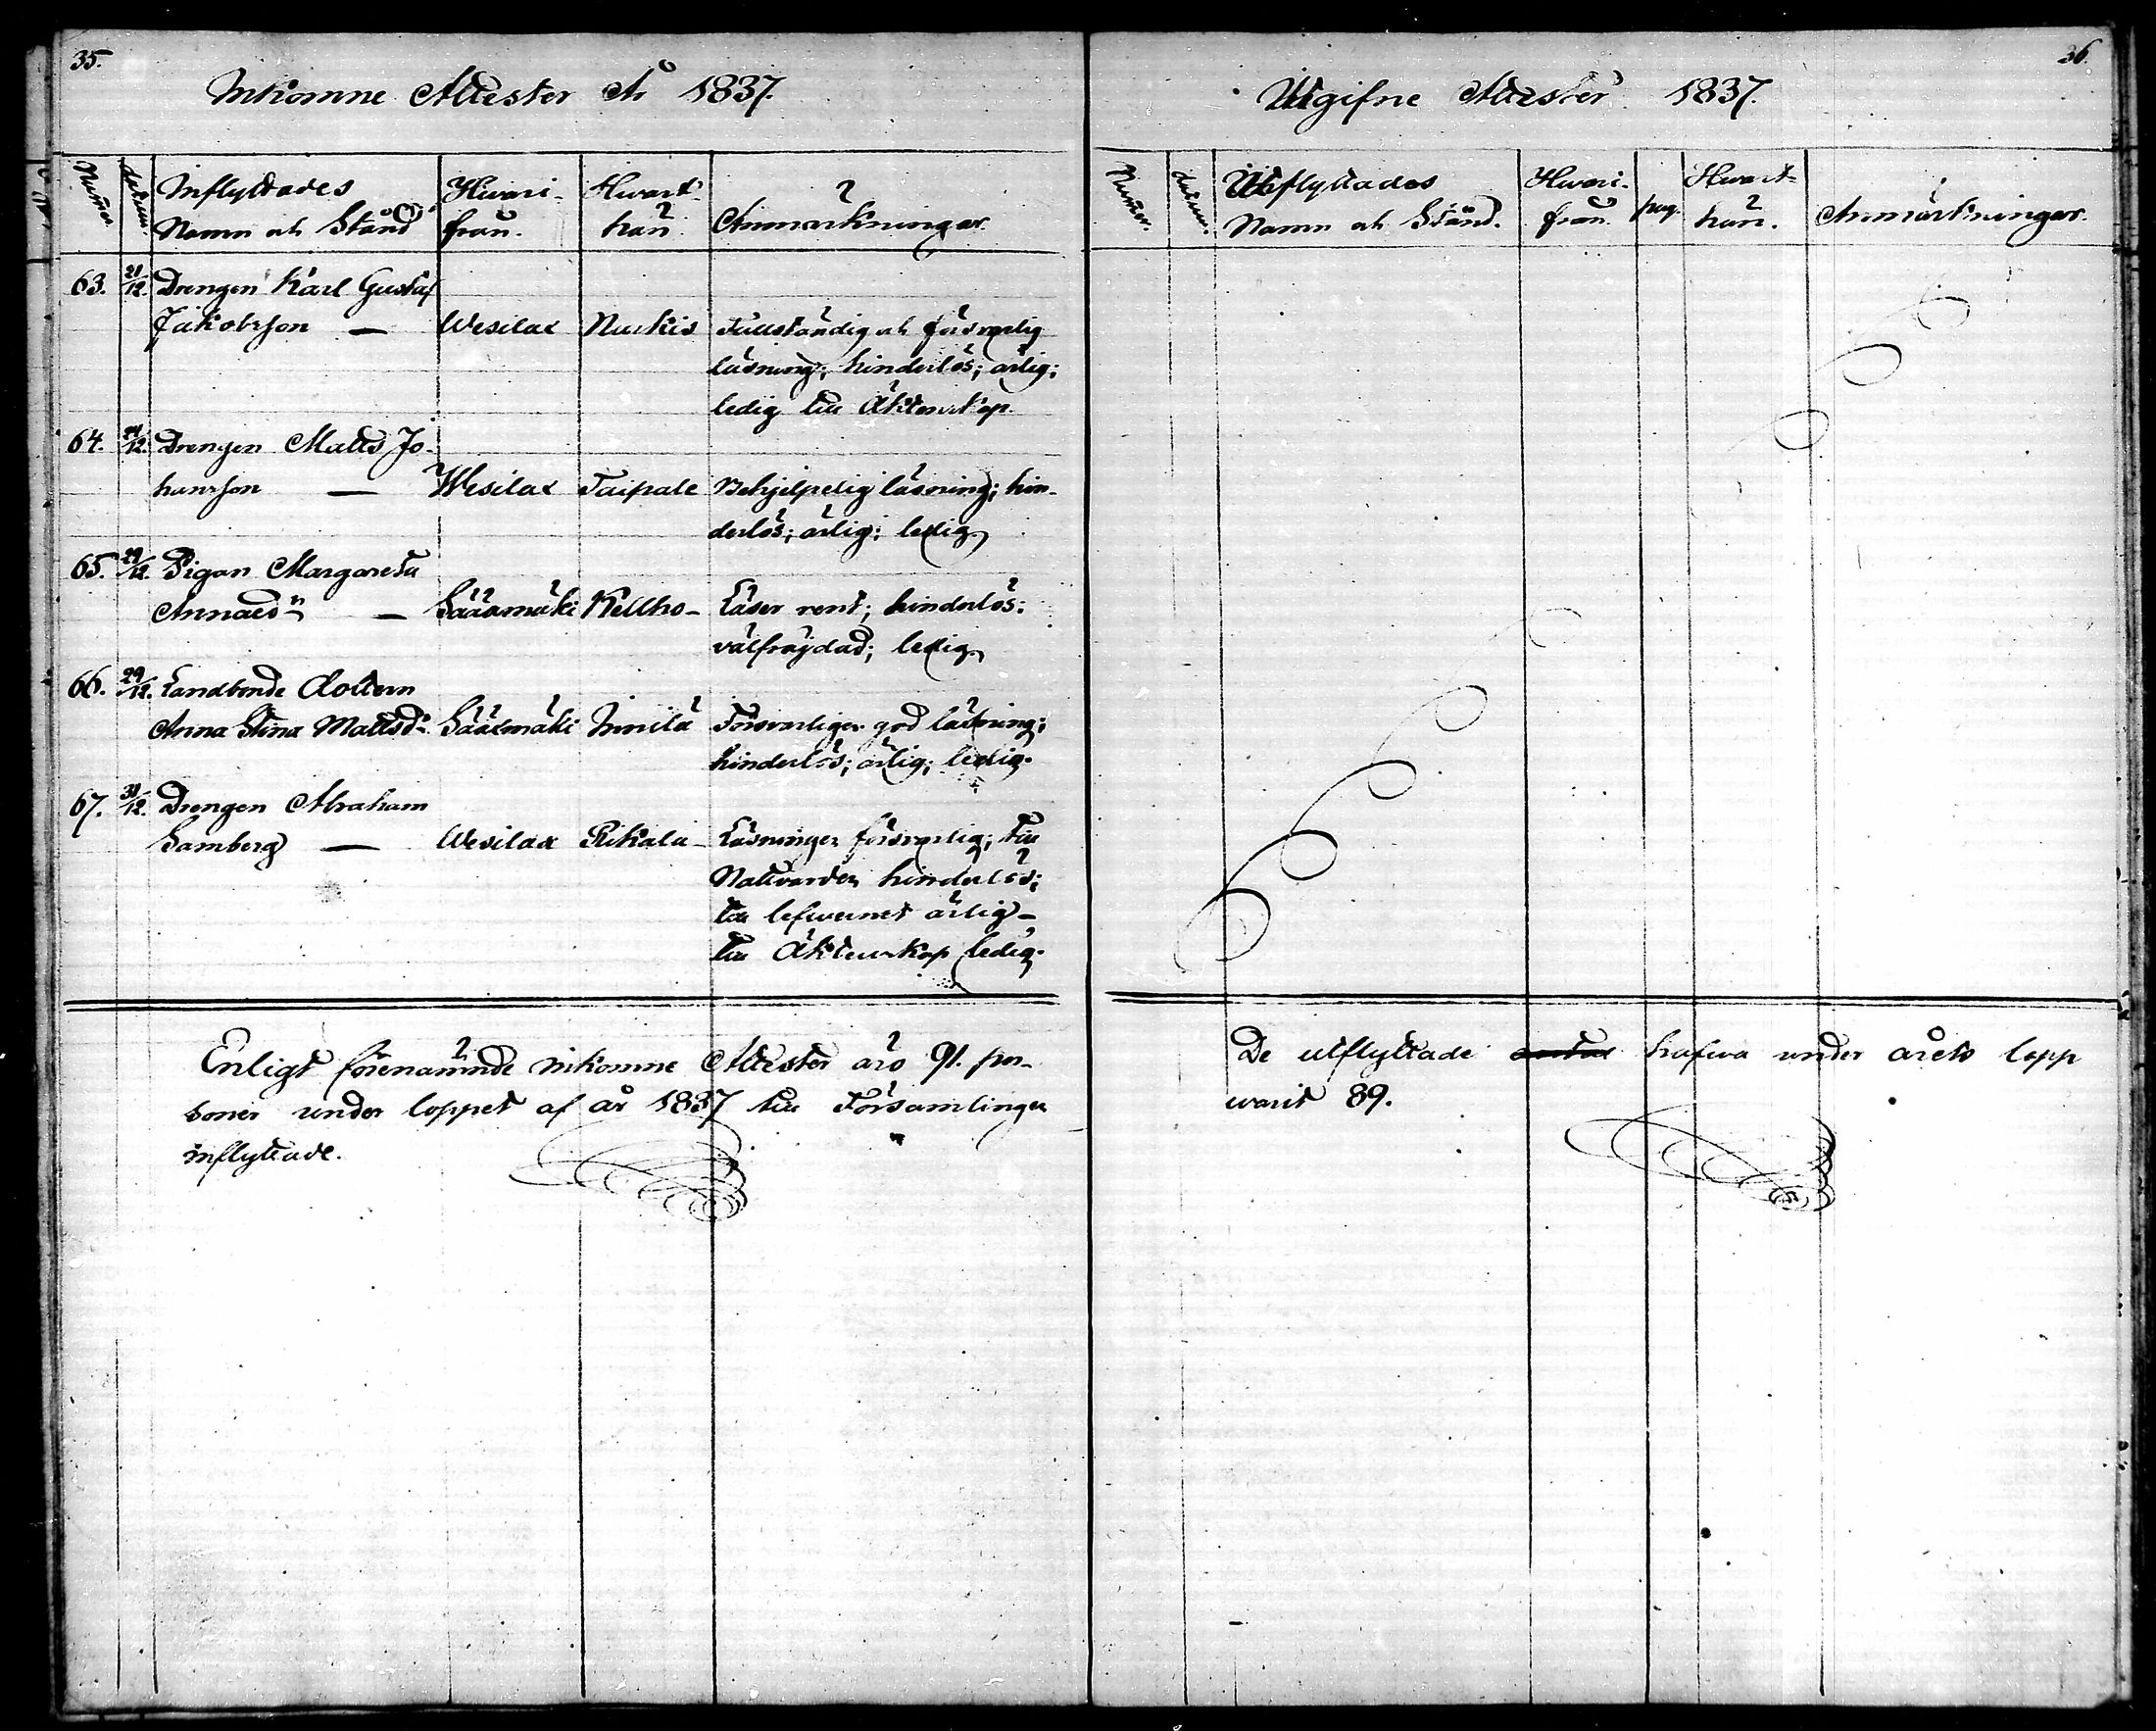 35.
Inkomne Attester År 1837.
Numer. datum. Inflyttades Namn och Stånd Hwari-från. Hwart-hän Anmärkningar.
63. 21/12. Drengen Karl Gustaf
Jakobsson — Wesilax Nurkis Fullständig och försvarlig
läsning; hinderlös; ärlig;
ledig till Äktenskap.
64. 21/12. Drengen Matts Jo-
hansson — Wesilax Taipale Behjelpelig läsning; hin-
derlös; ärlig; ledig
65. 29/12. Pigan Margareta
— Sääxmäki Kellho- Läser rent; hinderlös;
välfräjdad; ledig
66. 29/12. Landbonde dottern
Anna Stina Mattsdr. Sääxmäki Innilä Försvarligen god läsning;
hinderlös; ärlig; ledig.
67. 31/12. Drengen Abraham
Samberg — Wesilax Rikala Läsningen försvarlig; till
Nattvarden hinderlös;
till lefwernet ärlig —
till Äktenskap ledig.
Enligt förenämnde inkomne Attester äro 91. per-
soner under loppet af år 1837 till Församlingen
inflyttade.
36.
Utgifne Attester 1837.
Numer. datum. Utflyttades Namn och Stånd. Hwari-från. pag. Hwart-hän. Anmärkningar.
De utflyttade hafwa under årets lopp
warit 89.